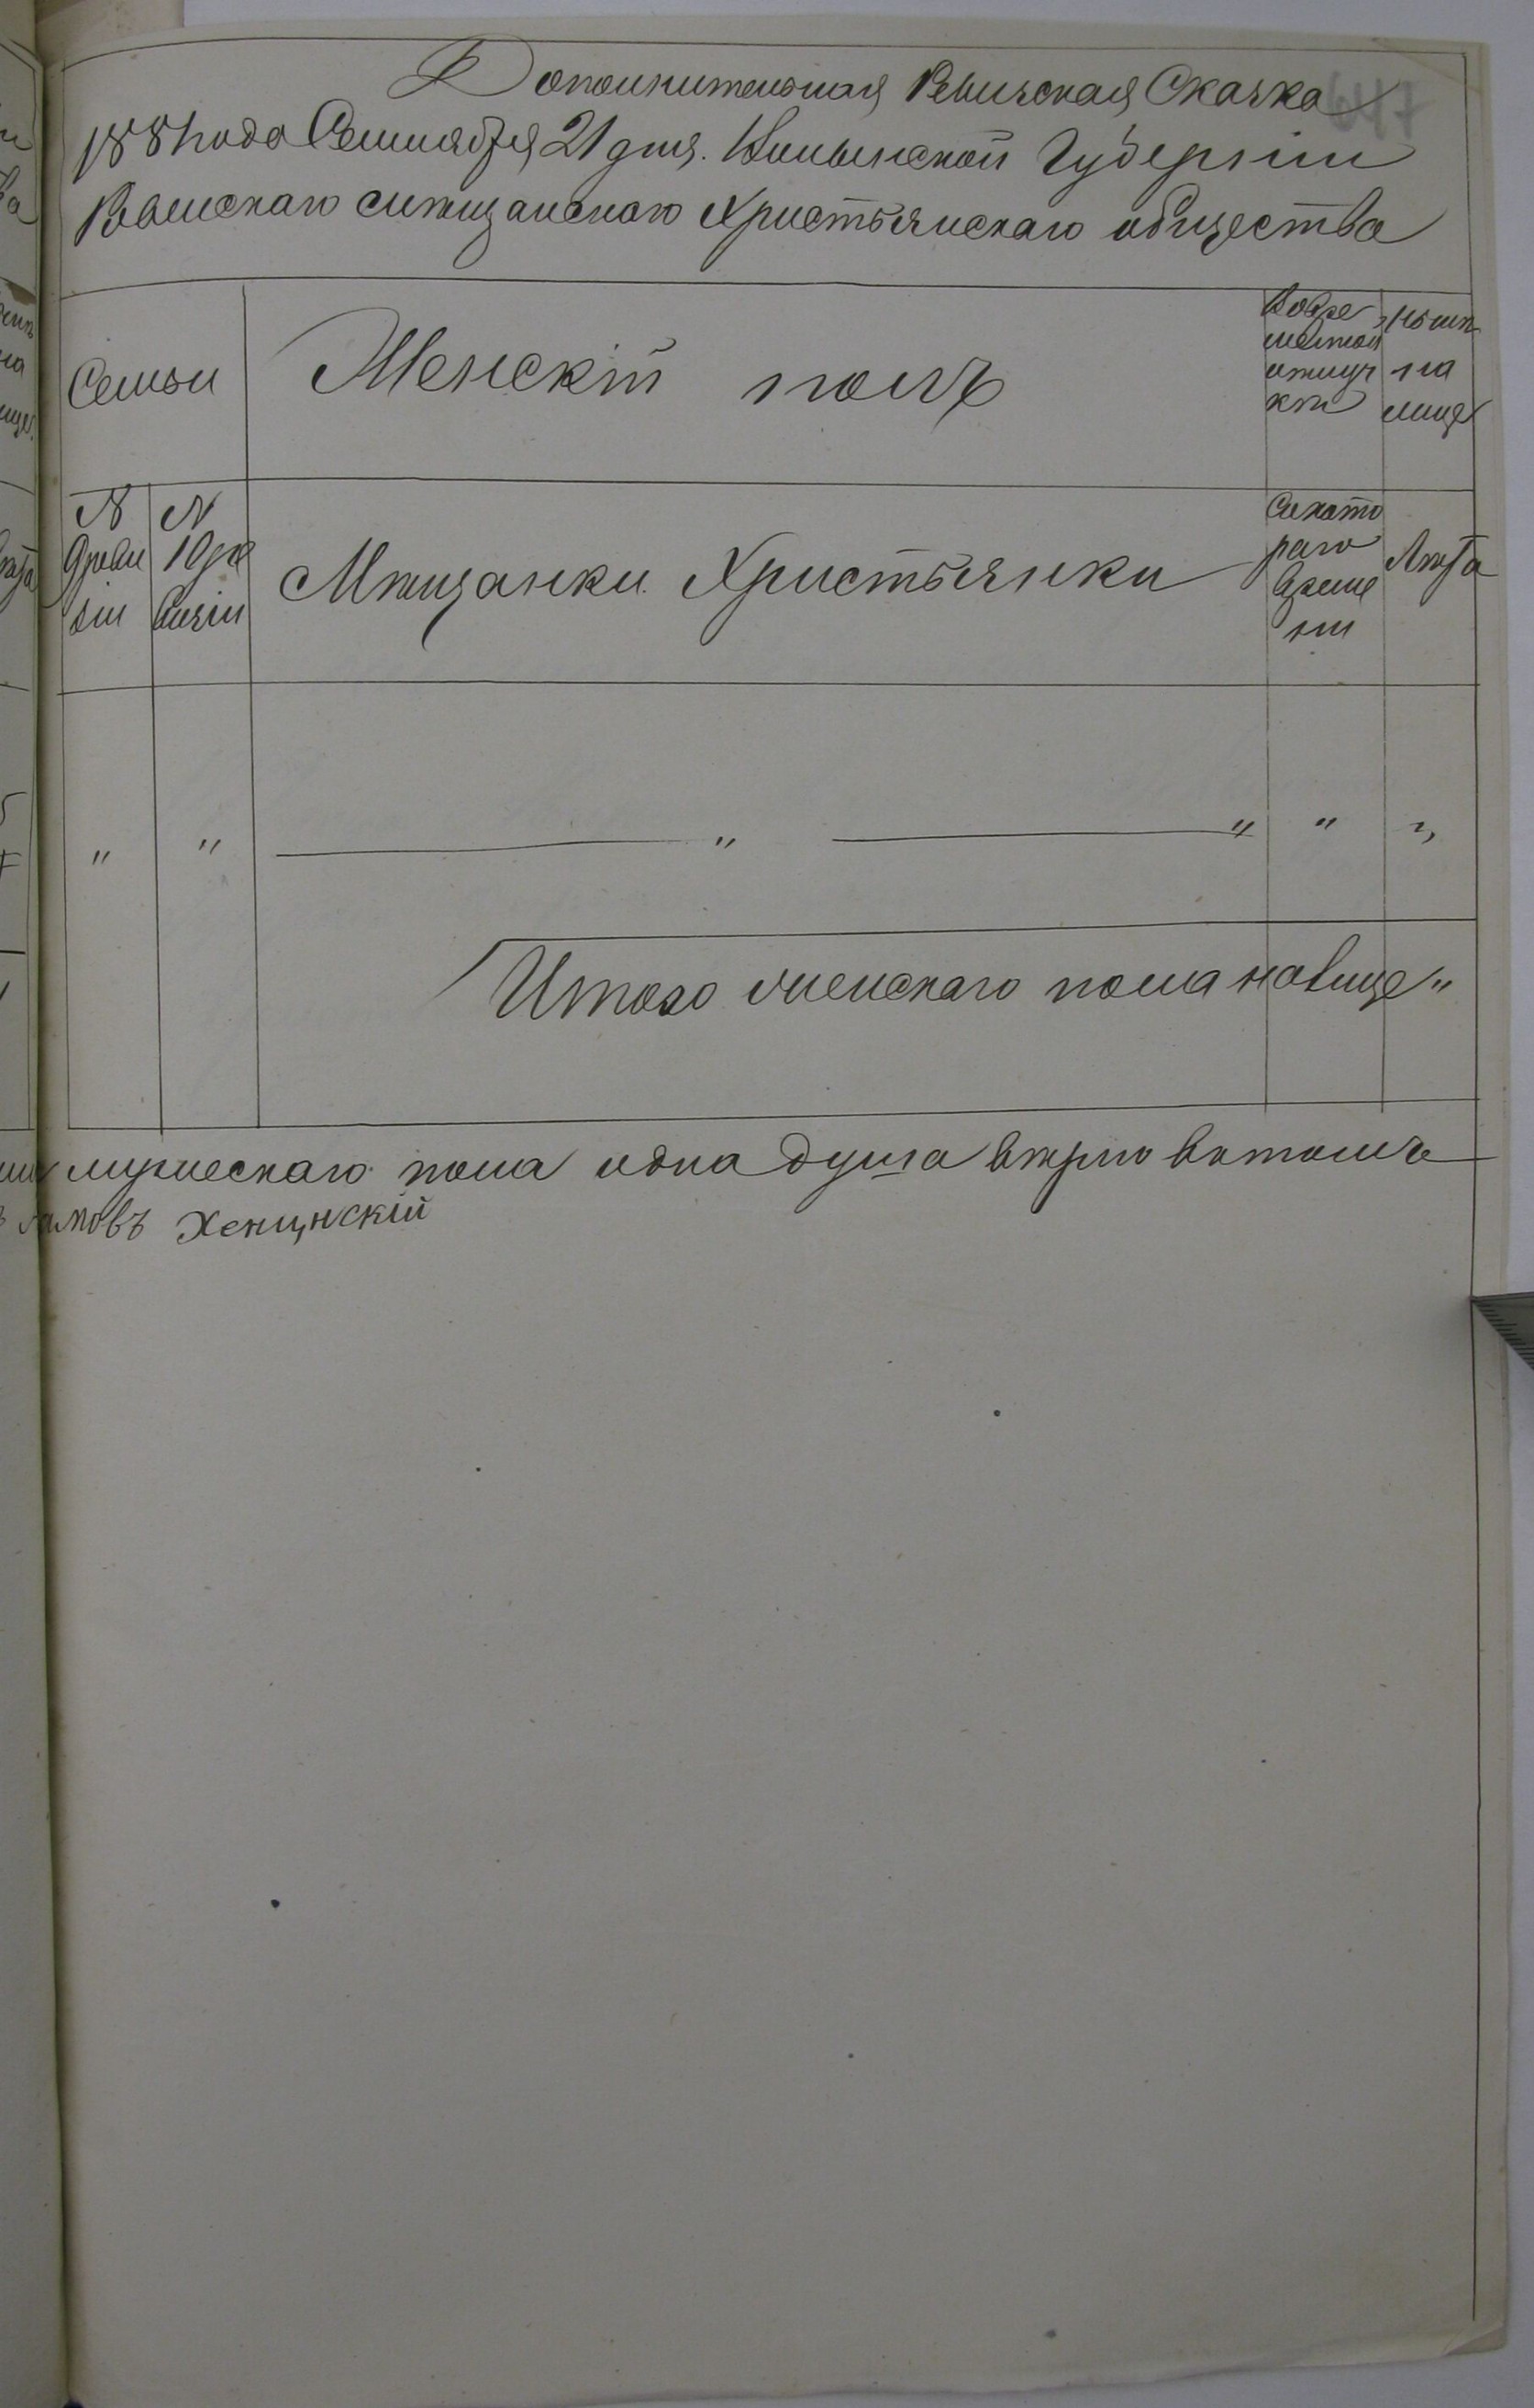 Дополнительная Ревизская Сказка
1881 года Сентября 21 дня. Волынской Губерніи
Ровенскаго мѣщанскаго Христьянскаго общества
Семьи
Женскій полъ
Во временной отлучкѣ
Нынѣ на лицо
№ Древн
№ 10 ре визіи
Мѣщанки Христьянки
Съ кото раго време ни
Лѣта
" " " " " "
Итого женскаго пола на лицо "
мужескаго пола одна душа вѣрно въ томъ
Хенцнскій